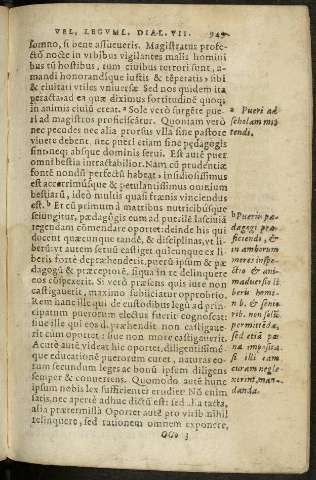 VEL, LEGVML. DIAL. VII. 949
somno, si bene assueueris. Magistratus profe-
ctò nocte in vrbibus vigilantes malis homini
bus tũ hostibus, tum ciuibus terrori sunt, a-
mandi honorandíque iustis & tẽperatis, sibi
& ciuitati vtiles vniuersæ Sed nos quidem ita
peracta, ad ea quæ diximus fortitudinẽ quoq;
in animis ciuiũ creat. a Sole verò surgẽte pue-
ri ad magistros proficiscãtur. Quoniam verò
nec pecudes nec alia prorsus vlla sine pastore
viuere debent, nec pueri etiam sine pędagogis
sint, neq; absque dominis serui. Est autẽ puer
omni bestia intractabilior. Nam cũ prudentiæ
fontẽ nondũ perfectũ habeat, insidiosissimus
est acerrimúsque & petulantissimus omnium
bestiarũ, ideò multis quasi frænis vinciendus
est. b Et cũ primum à matribus nutricibúsque
seiungitur, pædagogis eum ad puerilẽ lasciuiã
regendam cõmendare oportet: deinde his qui
docent quæcunque tandẽ, & disciplinas, vt li-
berũ: vt autem seruũ castiget quicunque ex li-
beris fortè depræhenderit, puerũ ipsum & pæ
dagogũ & præceptorẽ, siqua in te delinquere
eos cõspexerit. Si verò præsens quis iure non
castigauerit, maximo subiiciatur opprobrio.
Rem hanc ille qui de custodibus legũ ad prin-
cipatum puerorum electus fuerit cognoscat:
siue ille qui eos deprǽhendit non castigaue-
rit cum oportet: siue non more castigauerit.
Acutè autẽ videat hic oportet, diligentissimé-
que educationẽ puerorum curet, naturas eo-
rum secundum leges ad bonũ ipsum diligens
semper & conuertens. Quomodo autẽ hunc
ipsum nobis lex sufficienter erudiet? Nõ enim
satis, nec apertè adhuc dictũ est: sed
alia prætermissa Oportet autẽ pro viribus nihil
relinquere, sed rationem omnem exponere,
GGo 3
a Pueri ad
scholam mit
tendi.
b Pueris pæ-
dagogi præ-
ficiendi, &
in amborum
mores inspe-
ctio & ani-
maduersio li
beris homi-
nib. & seni-
rib. non solũ
permittẽda,
sed etiã pœ-
na imposita,
si illi eam
curam negle
xerint, man-
danda.